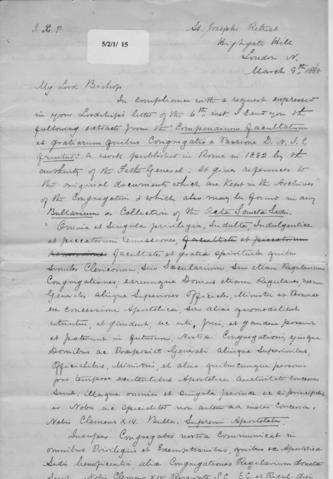 J. X. P.
St. Josephs Retreat
5/2/1/ 15
Highgate Hill
London N.
March 9th
My Lord Bishop
In compliance with a request expressed
in your Lordship's letter of the 6th inst I send you the
following extracts from the Compendium facultatum
et gratiarum quibus Congregatio a Passione D. N. J. C.
fruitur. A work published in Rome in 1882 by the
authority of the Father General. It gives references to
the original documents which are kept in the Archives
of the Congregation & which also may be found in any
Bullarium or Collection of the Acta Sanctae Sedis.
"Omnia et Singula privilegia, Indulta, Indulgentias
et peccatorum remissiones,
facultates et gratias Spirituales quibus
Similes Clericorum, Seu Saecularium Seu etiam Regularium
Congregationes, earumque Domus etiam Regulares,
Generales, aliique Superiores Officiales, Ministri et Personae
ex concessione Apostolica, Seu alias quomodolibet
utuntur, et gaudent, ac uti, frui, et gaudere possunt
et poterunt in futurum, Nostra Congregationi, ejusque
Domibus ac Praeposito Generali aliisque Superioribus
Officialibus, Ministris et aliis quibuscumque personis
pro tempore existentibus Apostolica Auctoritate
omnia et Singula
Nobis
Nobis Clemens XIV. Bulla. Supremi Apostolatus
Insuper Congregatio nostra Communicat in
omnibus Privilegiis et Exemptionibus, quibus ex Apostolica
Sedis beneficentia, alia Congregationes Regularium